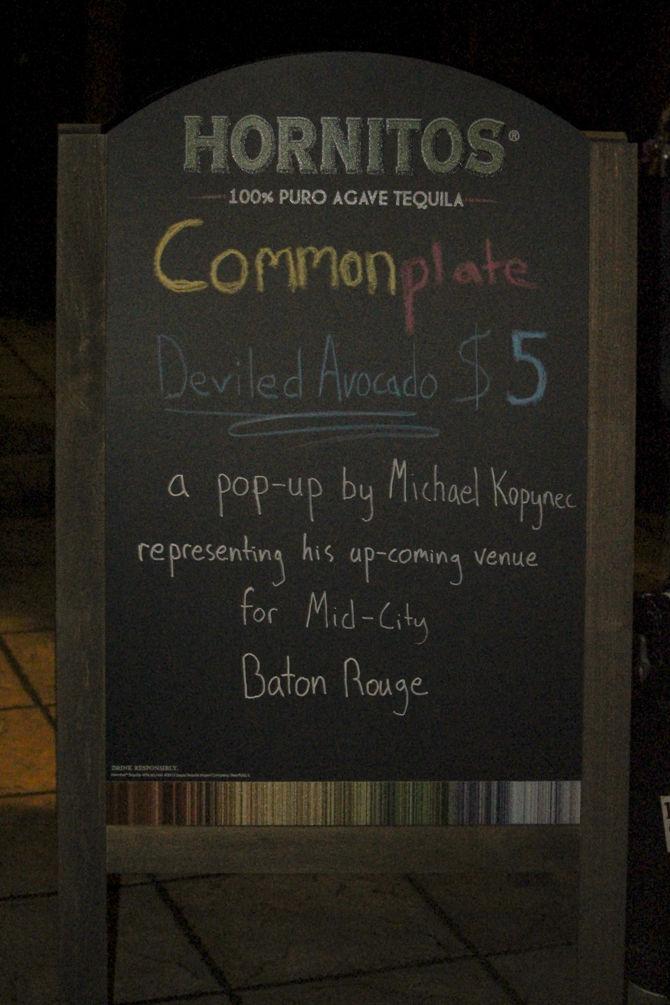 HORNITOS®
100% PURO AGAVE TEQUILA
Commonplate
Deviled Avocado $5
a pop-up by Michael Kopynec
representing his up-coming venue
for Mid-City
Baton Rouge
DRINK RESPONSIBLY.